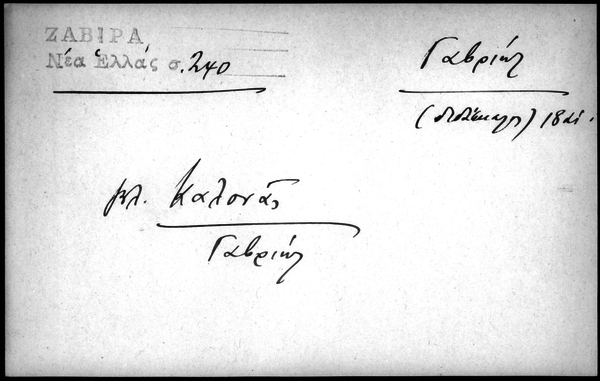 ΖΑΒΙΡΑ
Νέα Ἑλλάς σ. 240
Γαβριήλ
(διδάσκαλος) 18
βλ. Καλονᾶς
Γαβριήλ